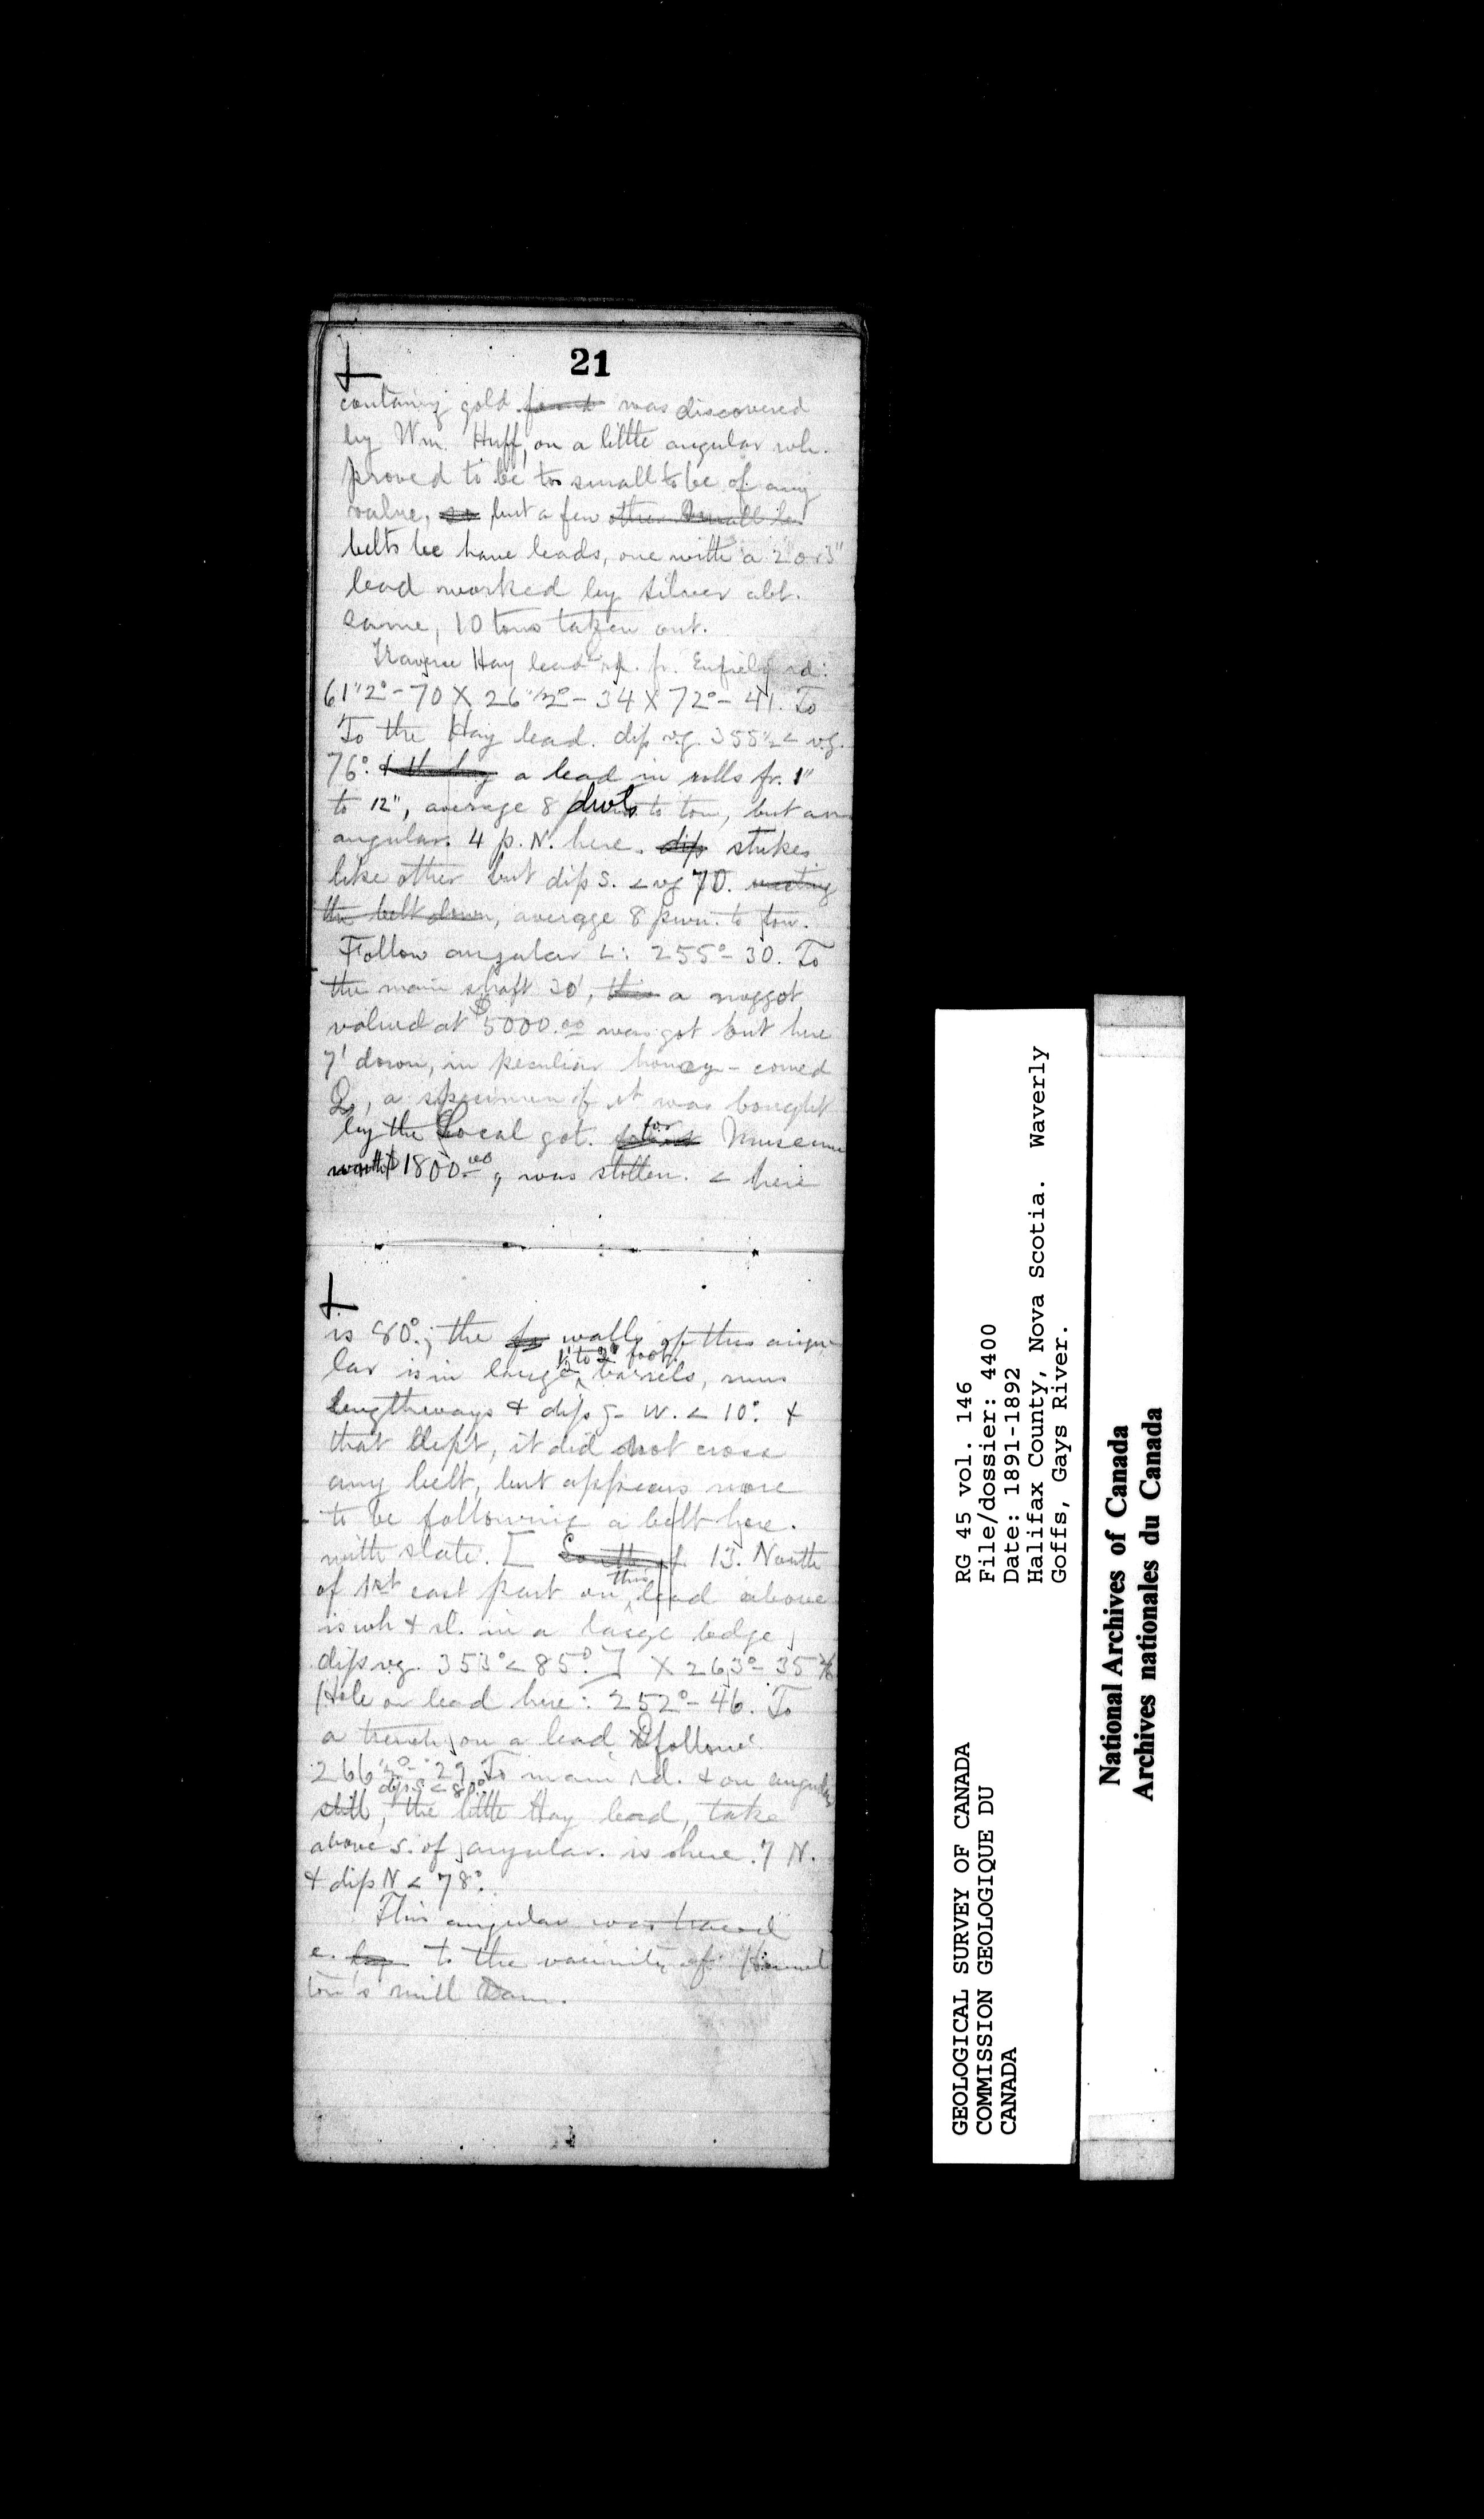 21
containg gold found was discovered
by Wm. Huff, on a little angular wh.
proved to be too small to be of any
value, so but a few other small
belts be have leads, one with a 2 or 3"
lead worked by Silver abt.
same, 10 tons taken out.
Traverse Hay lead rd. fr. Enfield rd:
61½° - 70 X 26½° - 34 X 72° - 41. To
To the Hay lead. dip vg. 355½ < vg.
76°. a lead in rolls fr. 1"
to 12", average 8 dwts to ton, but an
angular. 4 p. N. here. dip strikes
like other but dip S. < vg 70.
the belt down, average 8 pwn. to ton.
Follow angular L: 255° - 30. To
the main shaft 30', this a nuggot
valued at $5000.00 was got but here
7' down, in peculiar honey-comed
Q, a specimen of it was bought
by the Local got. for Museum
worth $1800.00, was stollen. < here
is 80°; the walls of this angu
lar is in large 1½ to 2' foot barrels, runs
lengthways & dip W. < 10°. &
that dept, it did not cross
any belt, but appears more
to be following a belt here.
with slate. [ South of 13. North
of 1st east part on this lead above
is wh & sl. in a large ledge
dip vg. 353° < 85°. ] X 263° - 35
Hole on lead here: 252° - 46. To
a trench on a lead & follow:
266½° - 29 To main rd. & on angular
dip S < 80°
still, the little Hay lead, take
above S. of angular. is here. 7 N.
& dip N < 78°.
This angular was traced
e. to the vacinity of Hamil
ton's mill Dam.
RG 45 vol. 146
File/dossier: 4400
Date: 1891-1892
Halifax County, Nova Scotia. Waverly
Goffs, Gays River.
GEOLOGICAL SURVEY OF CANADA
COMMISSION GEOLOGIQUE DU
CANADA
National Archives of Canada
Archives nationales du Canada